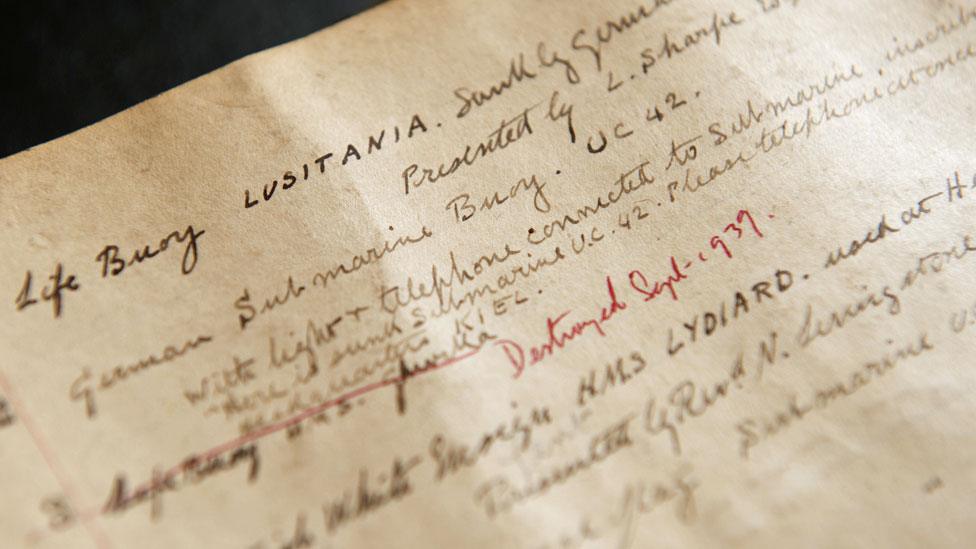 Life Buoy LUSITANIA. Sunk by German
Presented by L. Sharpe
German Submarine Buoy. UC 42.
With light + telephone connected to Submarine, inscrib
"Here is sunk Submarine U.C. 42. Please telephone at once
Headquarters KIEL.
Life Buoy H.M.S. Destroyed Sept. 1939.
White Ensign HMS LYDIARD. used at Ha
Presented by Revd N. Livingstone
flag Submarine U